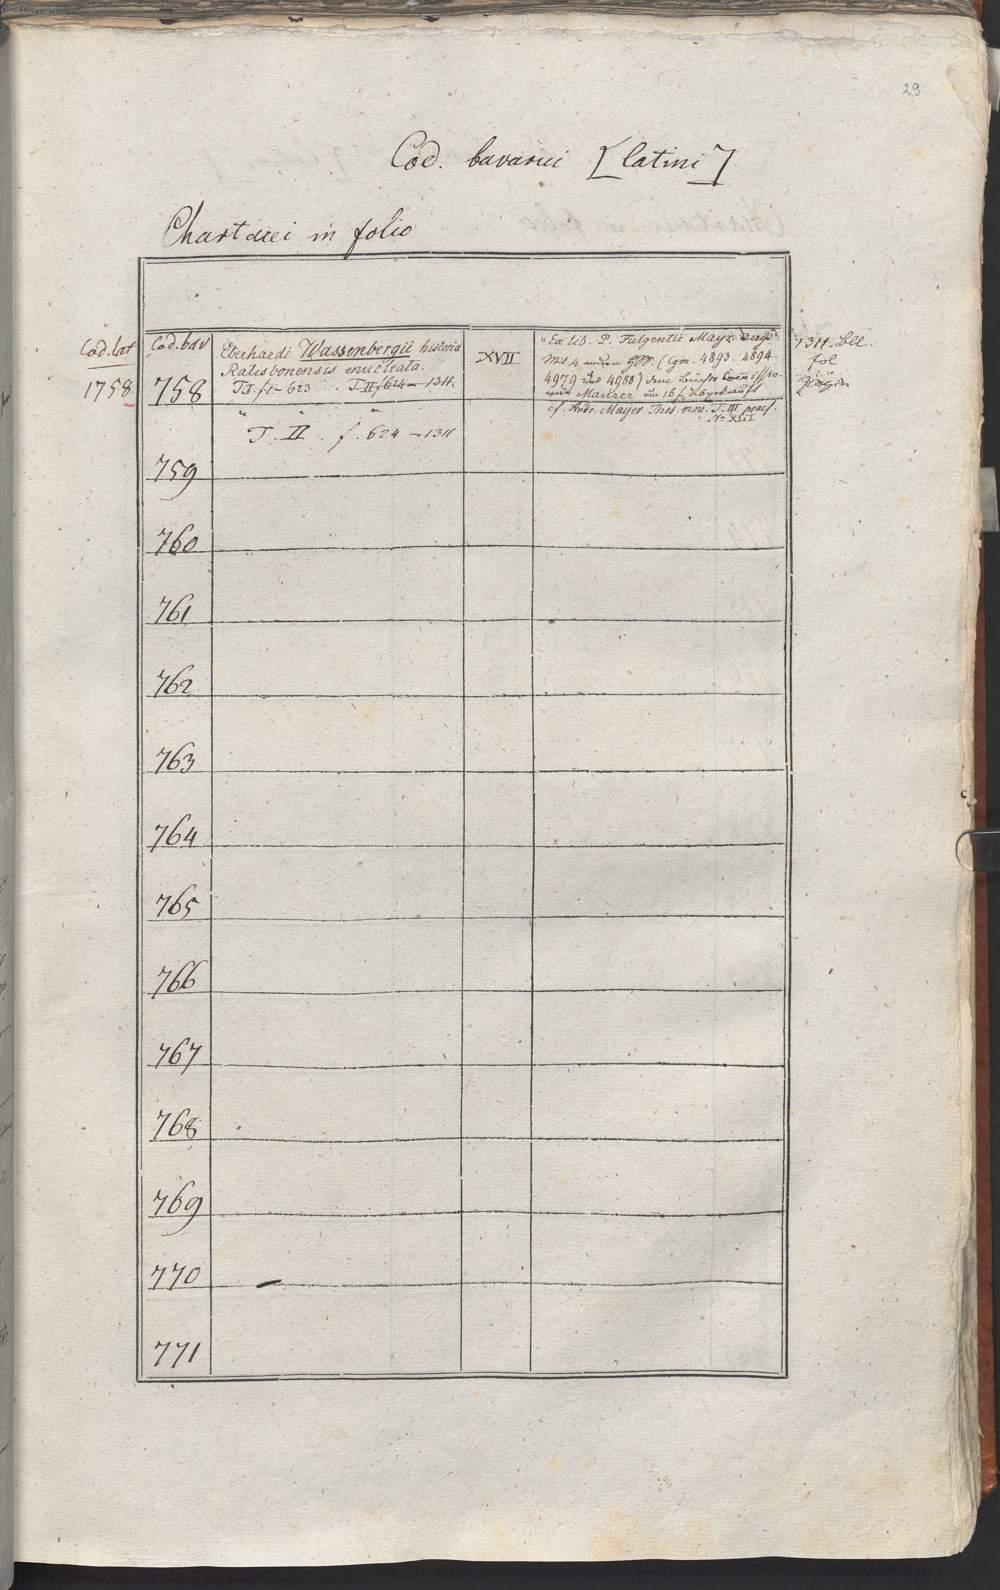 29
Cod. bavarici [latini]
Chartacei in folio
Cod. lat
1758
Cod. bav
758
Eberhardi Wassenbergii historia
Ratisbonensis enucleata.
T. I. f. 1 – 623 . T. II f 624 – 1311.
XVII
"Ex lib. P. Fulgentii Mayr
(Cgm. 4893. 4894.
4979 und 4980)
Maurer um 16 f
cf. Andr. Mayer Thes. nov. T. III praef.
No XIII
1311. Bll.
fol
" " "
T. II . f. 624 – 1311
759
760
761
762
763
764
765
766
767
768
769
770
771